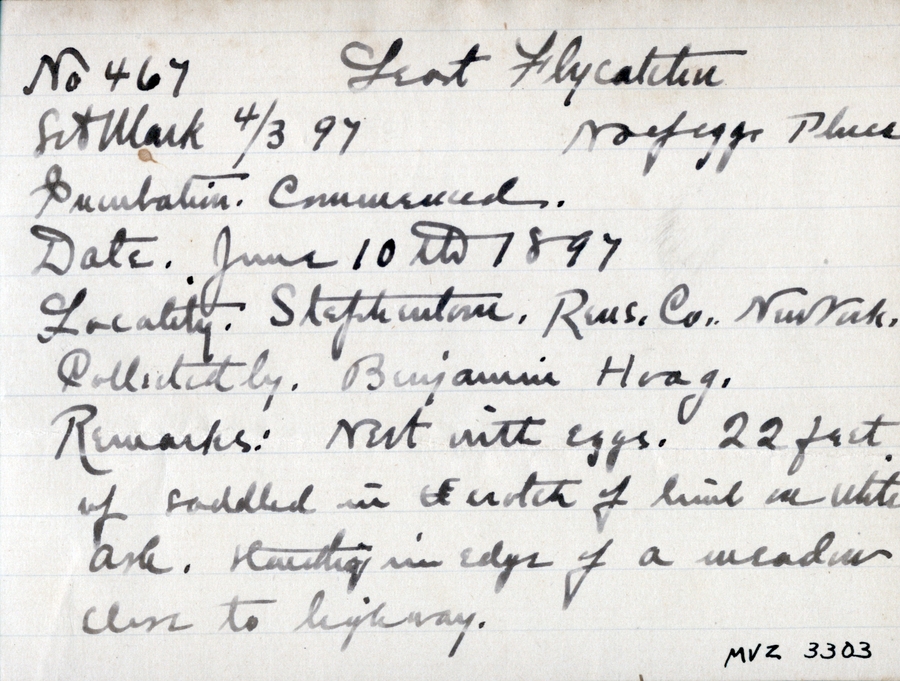 No 467 Least Flycatcher
Set Mark 4/3 97 No of eggs Three
Incubation. Commenced.
Date. June 10 th 1897
Locality. Stephentown. Rens. Co.. New York.
Collected by. Benjamin Hoag.
Remarks: Nest with eggs. 22 feet
up saddled in crotch of limb on white
ash. standing in edge of a meadow
close to highway.
MVZ 3303